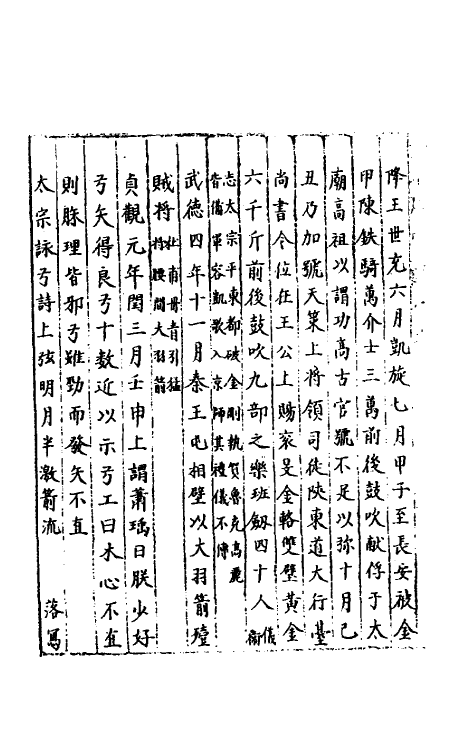 降王世充六月凱旋七月甲子至長安被金
甲陳鉄騎萬介士三萬前後鼓吹献俘于太
廟高祖以謂功高古官號不足以弥十月己
丑乃加號天策上將領司徒陝東道大行臺
尚書令位在王公上賜衮冕金輅雙璧黃金
六千斤前後鼓吹九部之樂班劔四十人儀衛
志太宗平東都破金剛執賀魯克高麗
皆備軍容凱歌入京師其禮儀不傳
武德四年十一月秦王屯相壁以大羽箭殪
賊將
腰間大羽箭
貞觀元年閏三月壬申上謂蕭瑀曰朕少好
弓矢得良弓十數近以示弓工曰木心不直
則脈理皆邪弓雖勁而發矢不直
太宗詠弓詩上弦明月半激箭流
落鴈